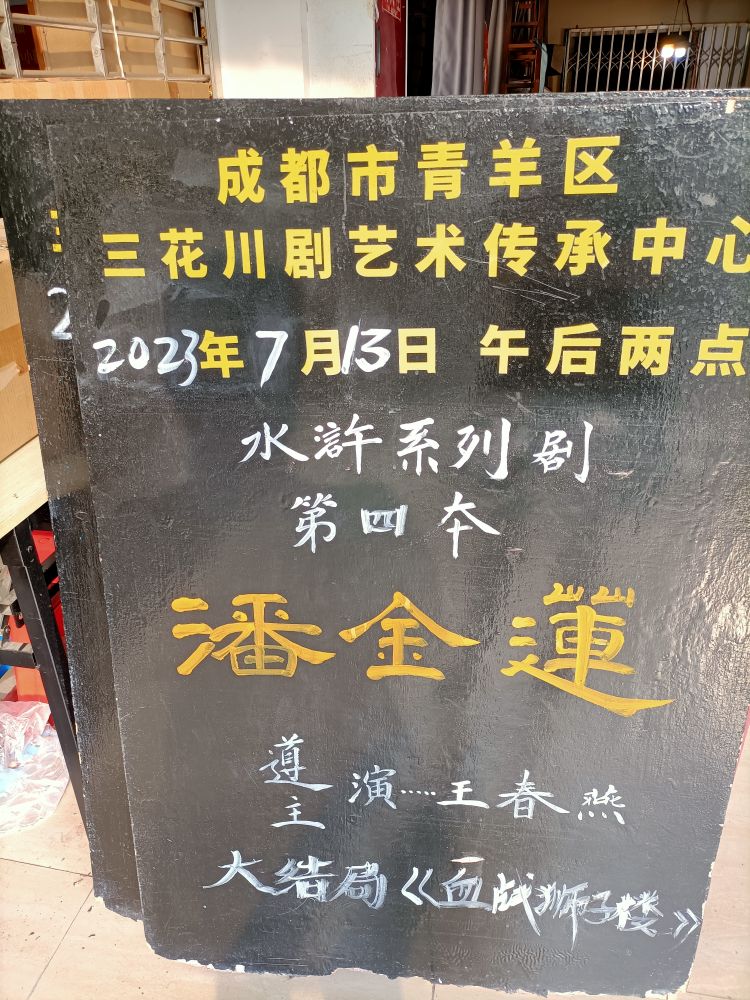 成都市青羊区
三花川剧艺术传承中心
2023年7月13日 午后两点
水浒系列剧
第四本
潘金蓮
導主演……王春燕
大结局《血战狮子楼》